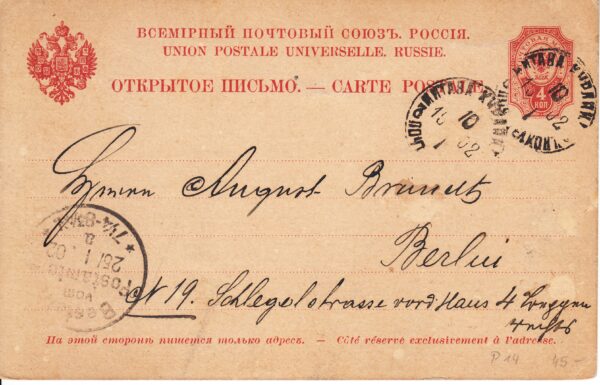 ВСЕМІРНЫЙ ПОЧТОВЫЙ СОЮЗЪ. РОССІЯ.
UNION POSTALE UNIVERSELLE. RUSSIE.
ОТКРЫТОЕ ПИСЬМО. — CARTE POSTALE.
4
КОП
10
1 02
10
1 02
Herrn August Brandt
Berlin
N 19. Schlegelstrasse vord Haus 4
rechts
Bestellt
vom
Postamte
25/1 02
7¼-8¾
На этой сторонѣ пишется только адресъ. — Côté réservé exclusivement à l'adresse.
P 14
45 -